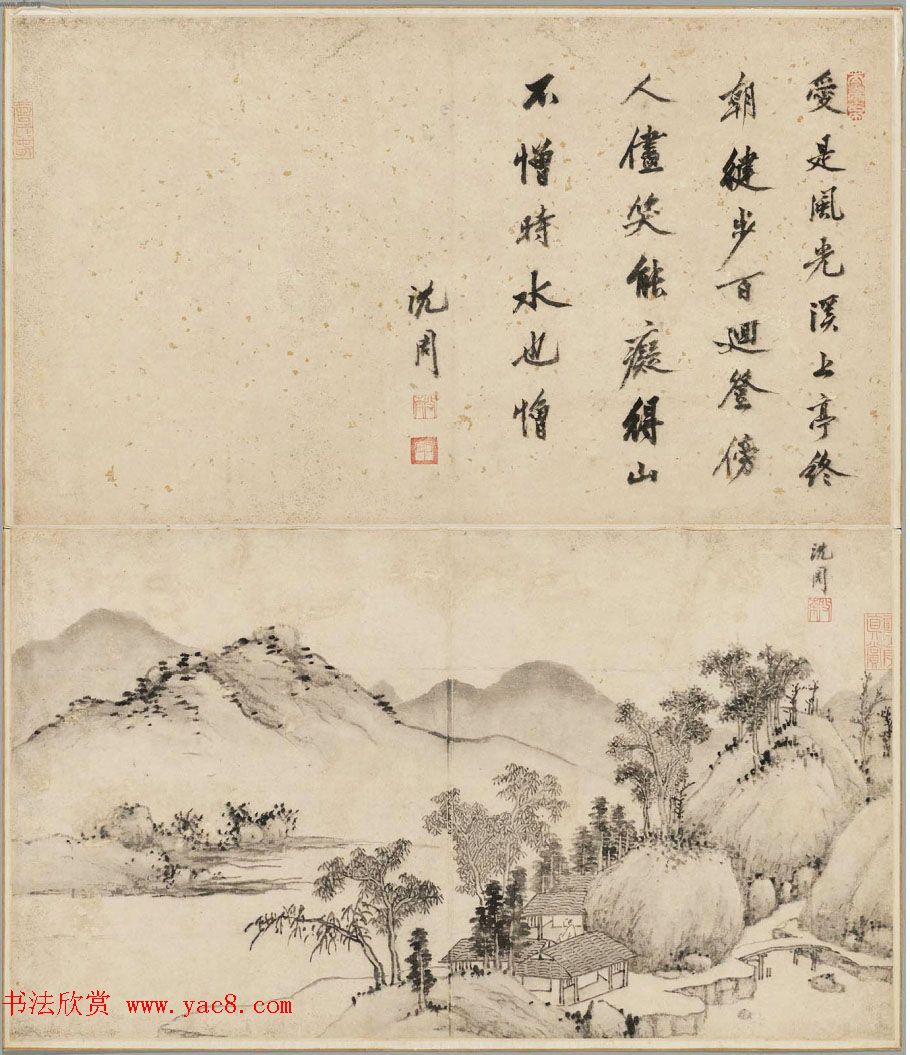 愛是風光溪上亭終
朝健步百迴登傍
人儘笑能癡得山
不憎時水也憎
沈周
沈周
书法欣赏 www.yac8.com